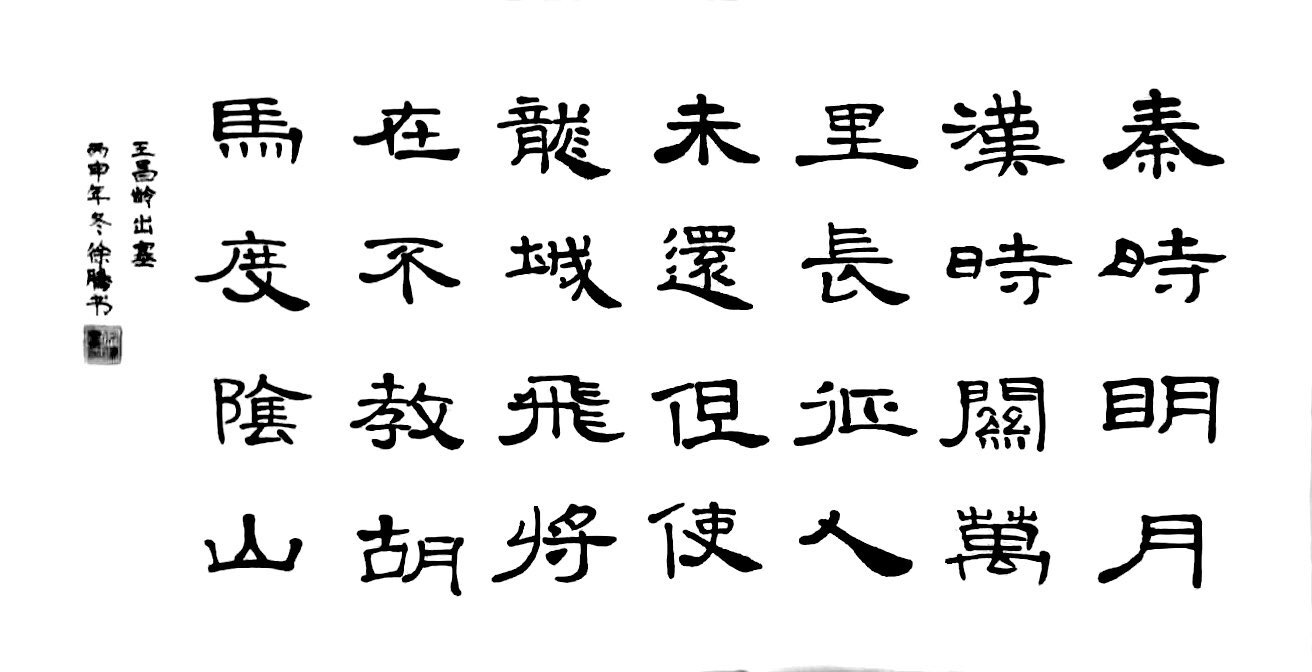 秦時明月
漢時關萬
里長征人
未還但使
龍城飛將
在不教胡
馬度陰山
王昌龄出塞
丙申年冬徐腾书